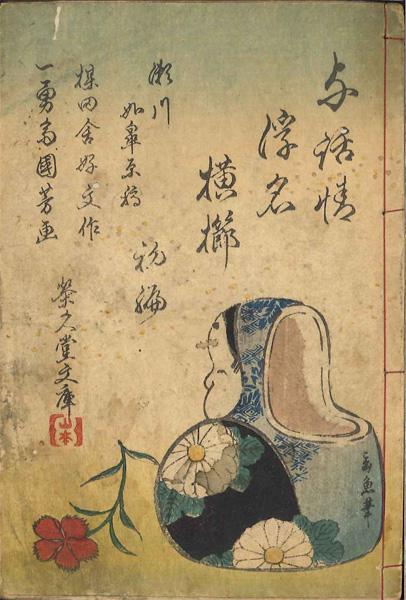 与話情
浮名
横櫛
瀬川
如皐原稿
初編
楳田舎好文作
一勇斎國芳画
栄久堂文庫
山本
魚筆